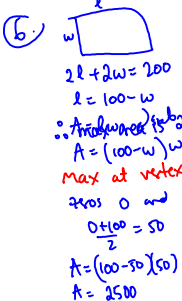 6.
l
w
2l + 2w = 200
l = 100 - w
A = (100-w)w
max at vertex
zeros 0 and
0+100/2 = 50
A = (100-50)(50)
A = 2500